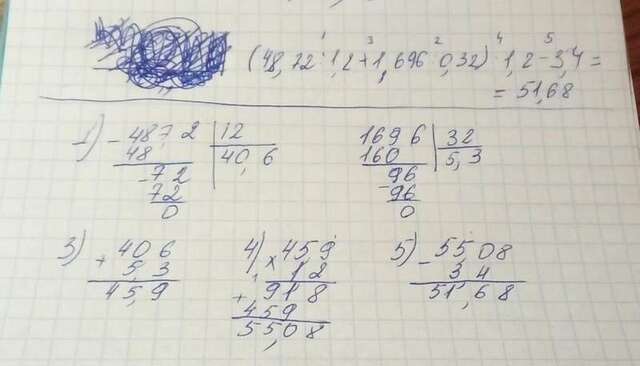 1 3 2 4 5
(48,72 : 1,2 + 1,696 : 0,32) · 1,2 - 3,4 =
= 51,68
1) - 487,2 | 12
48 | 40,6
- 72
72
0
1696 | 32
160 | 5,3
- 96
96
0
3) + 406
5,3
45,9
4) × 459
12
+ 918
459
55,08
5) - 55,08
3 4
51,68